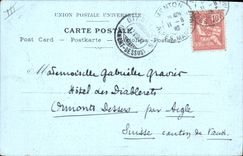 UNION POSTALE UNIVERSELLE
CARTE POSTALE
Post Card - Postkarte
MENTON
10
Mademoiselle Gabrielle Gravier
Hôtel des Diablerets
Ormonts Dessus par Aigle
Suisse canton de Vaud